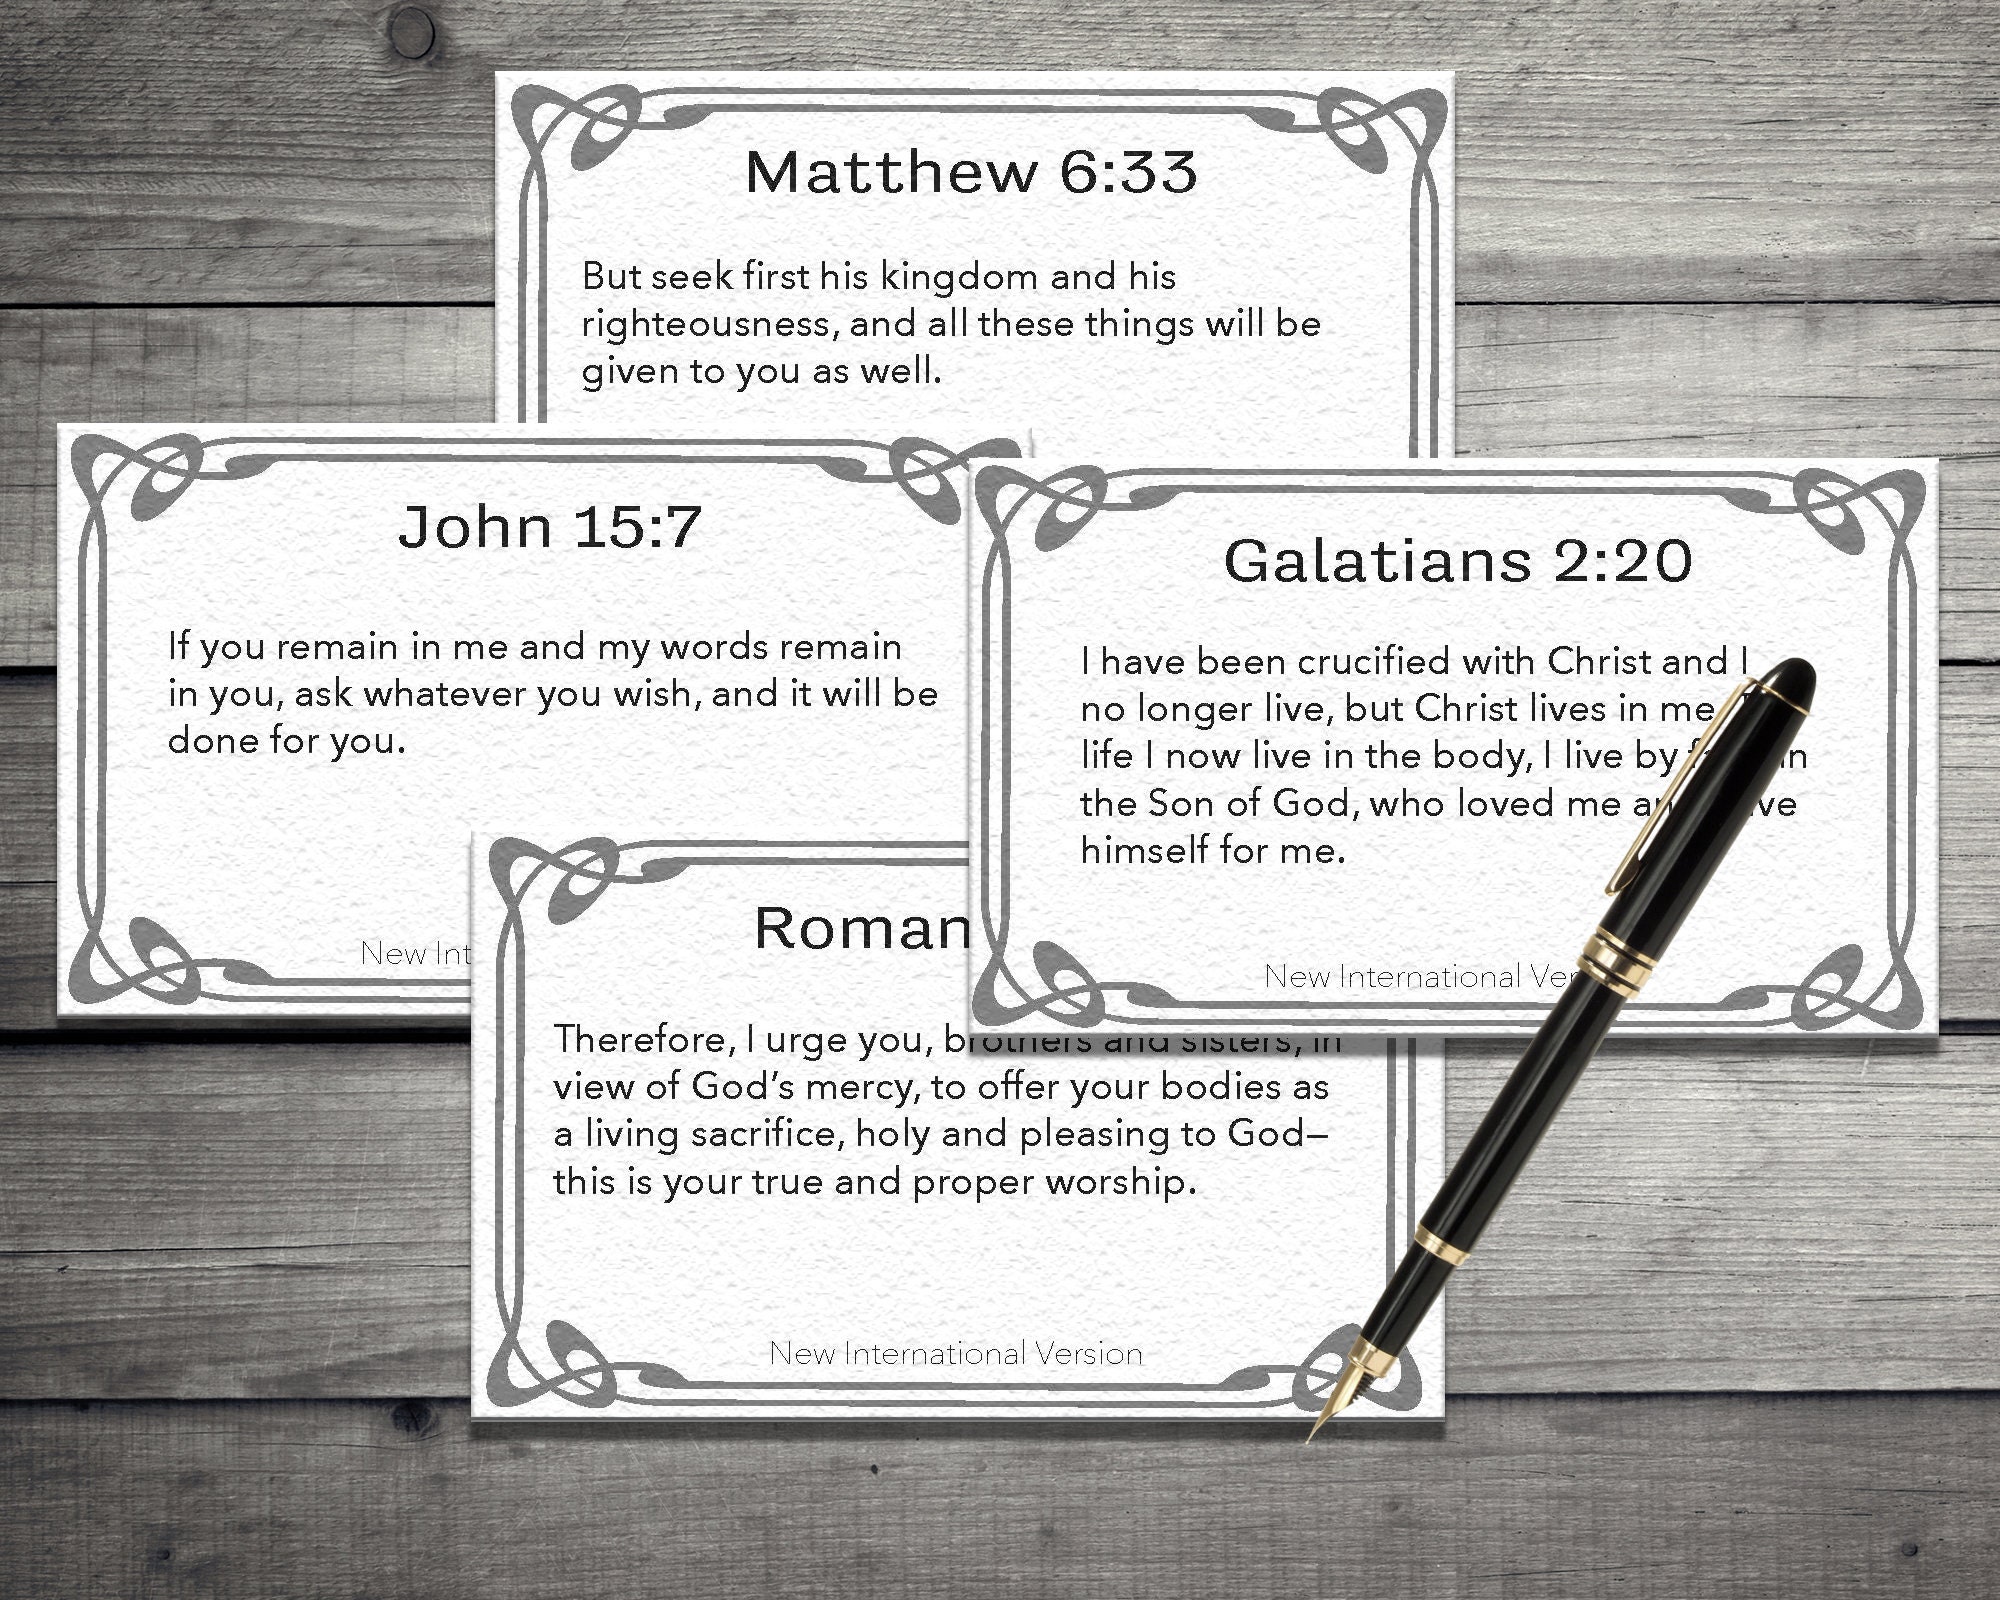 Matthew 6:33
But seek first his kingdom and his
righteousness, and all these things will be
given to you as well.
John 15:7
If you remain in me and my words remain
in you, ask whatever you wish, and it will be
done for you.
New Int
Galatians 2:20
I have been crucified with Christ and I
no longer live, but Christ lives in me
life I now live in the body, I live by in
the Son of God, who loved me
himself for me.
New International Ver
Roman
Therefore, I urge you, brothers and sisters, in
view of God’s mercy, to offer your bodies as
a living sacrifice, holy and pleasing to God—
this is your true and proper worship.
New International Version